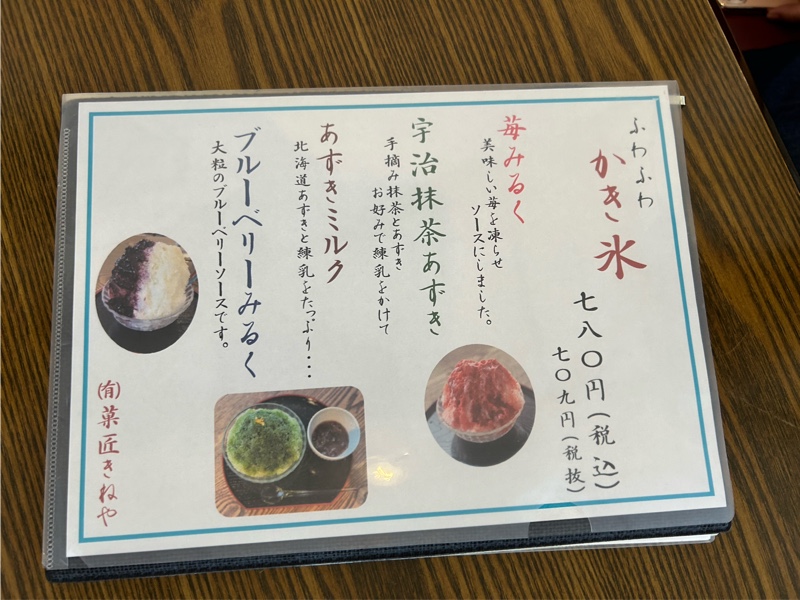 ふわふわ
かき氷
七八〇円(税込)
七〇九円(税抜)
苺みるく
美味しい苺を凍らせ
ソースにしました。
宇治抹茶あずき
手摘み抹茶とあずき
お好みで練乳をかけて
あずきミルク
北海道あずきと練乳をたっぷり・・・
ブルーベリーみるく
大粒のブルーベリーソースです。
(有)菓匠きねや